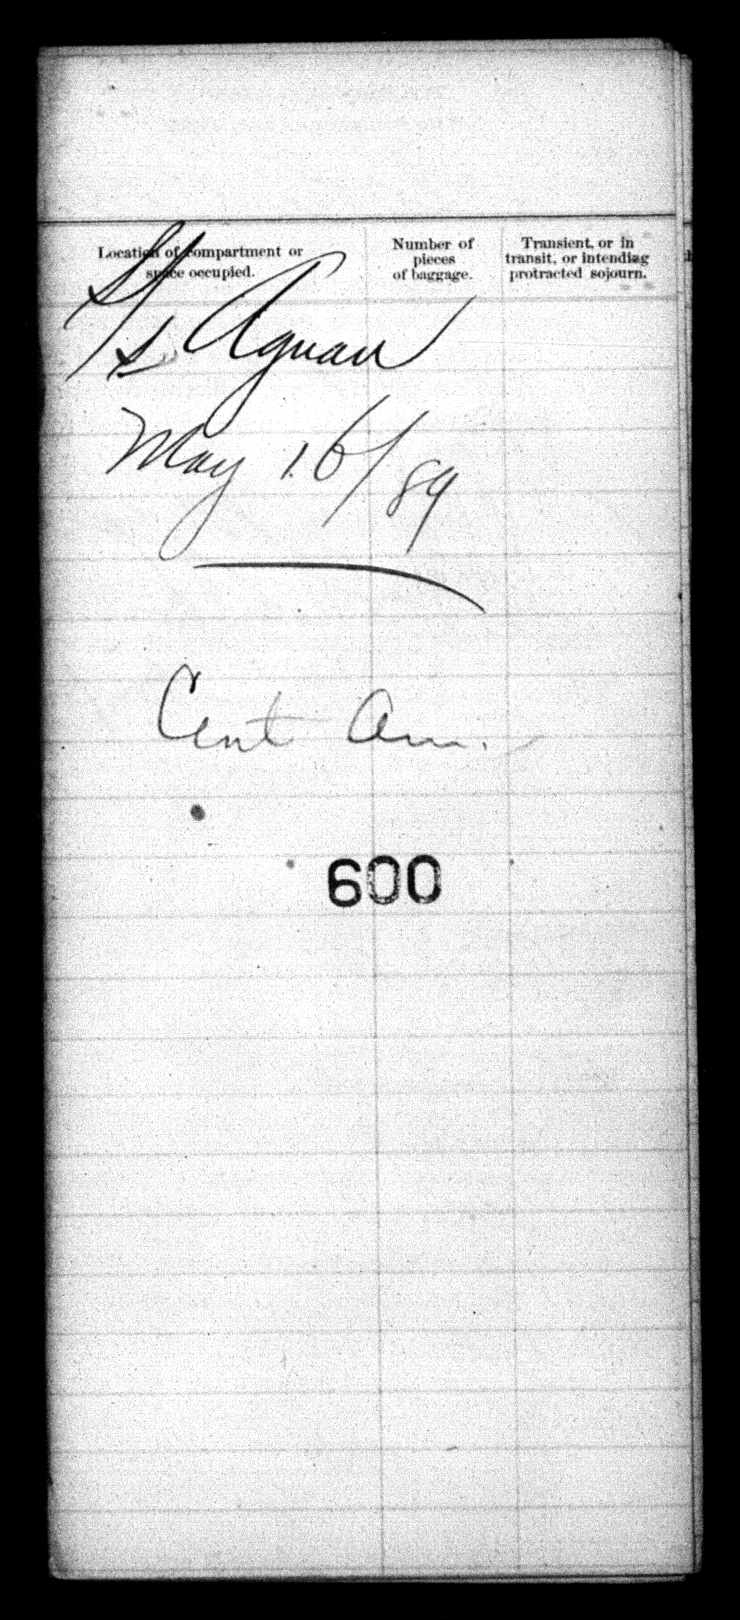 Location of compartment or
space occupied.
Number of
pieces
of baggage.
Transient, or in
transit, or intending
protracted sojourn.
S/s Aguan
May 16/89
Cent Am.
600